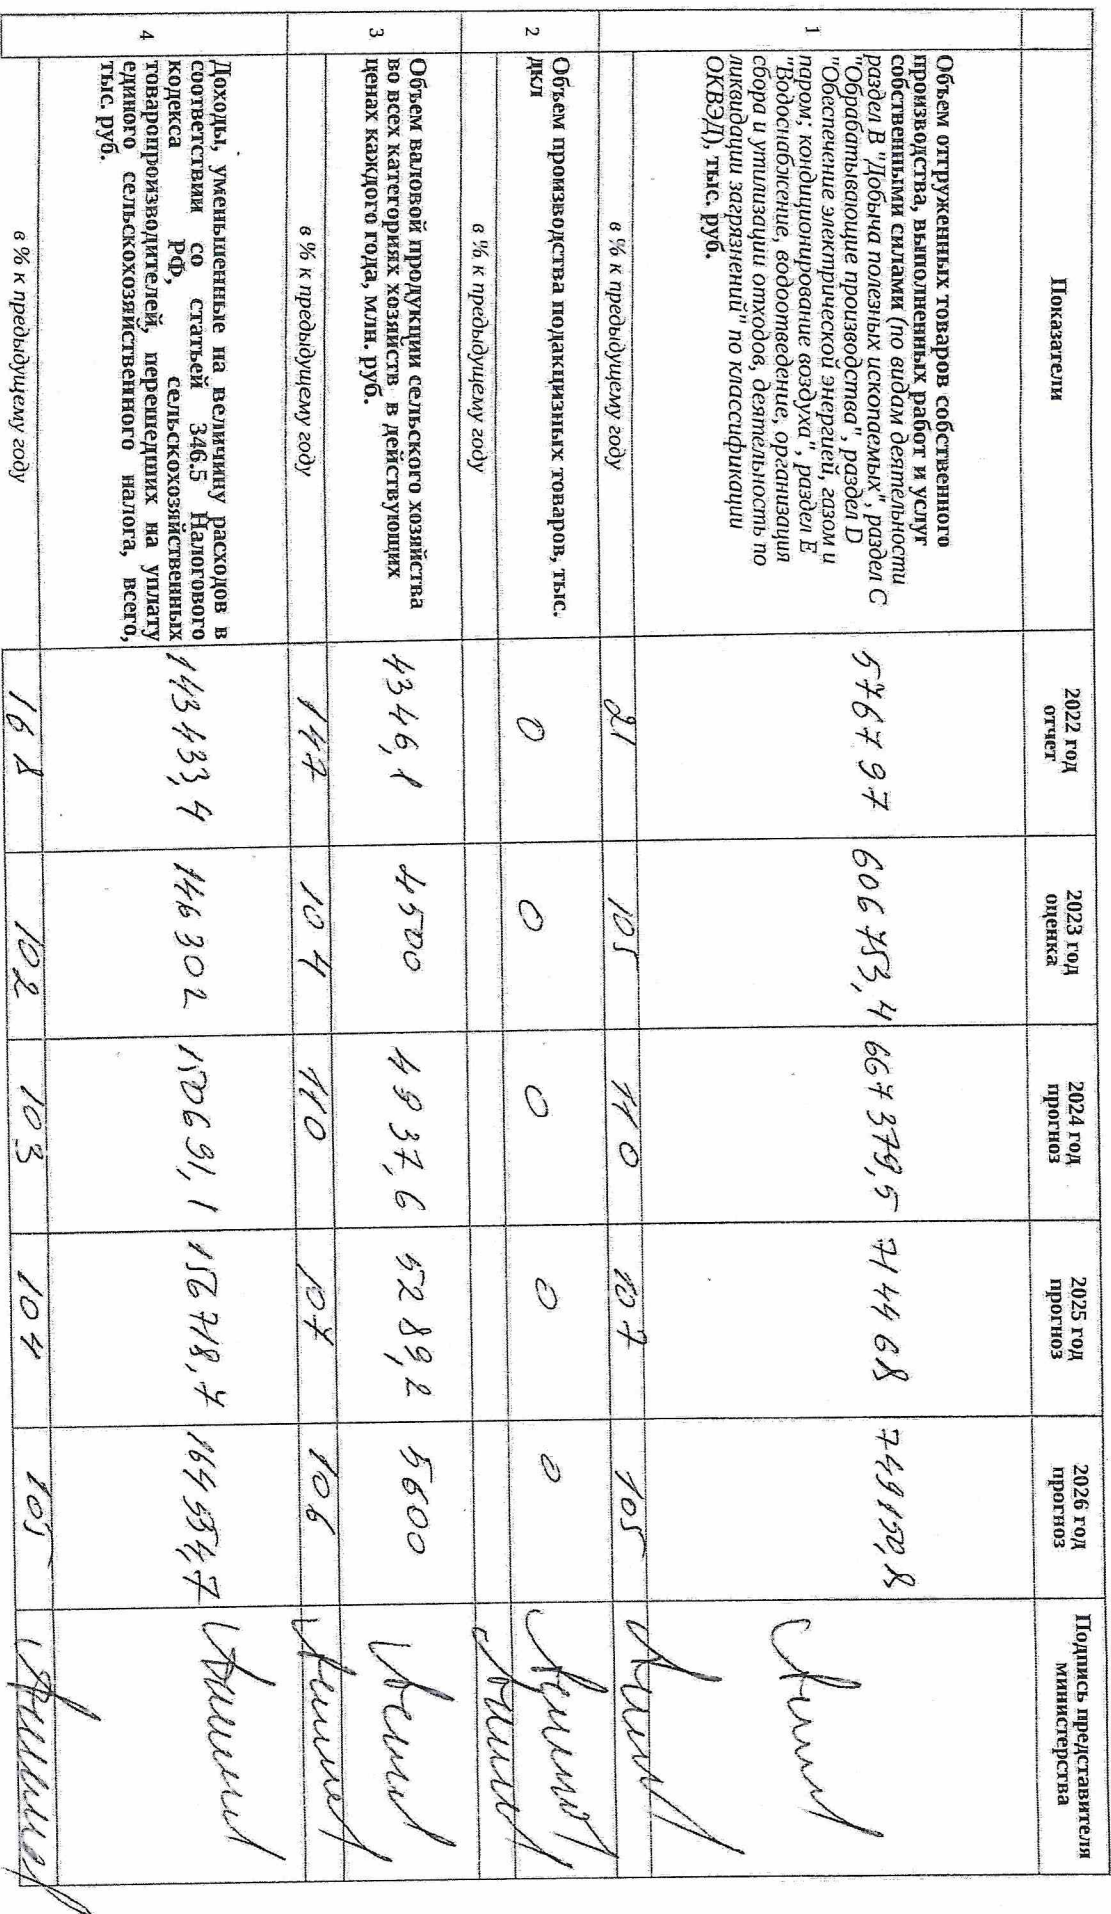 Показатели
2022 год
отчет
2023 год
оценка
2024 год
прогноз
2025 год
прогноз
2026 год
прогноз
Подпись представителя
министерства
1
Объем отгруженных товаров собственного
производства, выполненных работ и услуг
собственными силами (по видам деятельности
раздел В "Добыча полезных ископаемых", раздел С
"Обрабатывающие производства", раздел D
"Обеспечение электрической энергией, газом и
паром; кондиционирование воздуха", раздел Е
"Водоснабжение, водоотведение, организация
сбора и утилизации отходов, деятельность по
ликвидации загрязнений" по классификации
ОКВЭД), тыс. руб.
576797
606753,4
667379,5
714468
749150,8
в % к предыдущему году
21
105
110
107
105
2
Объем производства подакцизных товаров, тыс.
дкл
0
0
0
0
0
в % к предыдущему году
3
Объем валовой продукции сельского хозяйства
во всех категориях хозяйств в действующих
ценах каждого года, млн. руб.
4346,1
4500
4937,6
5289,2
5600
в % к предыдущему году
147
104
110
107
106
4
Доходы, уменьшенные на величину расходов в
соответствии со статьей 346.5 Налогового
кодекса РФ, сельскохозяйственных
товаропроизводителей, перешедших на уплату
единого сельскохозяйственного налога, всего,
тыс. руб.
143433,4
146302
150691,1
156718,7
164554,7
в % к предыдущему году
168
102
103
104
105